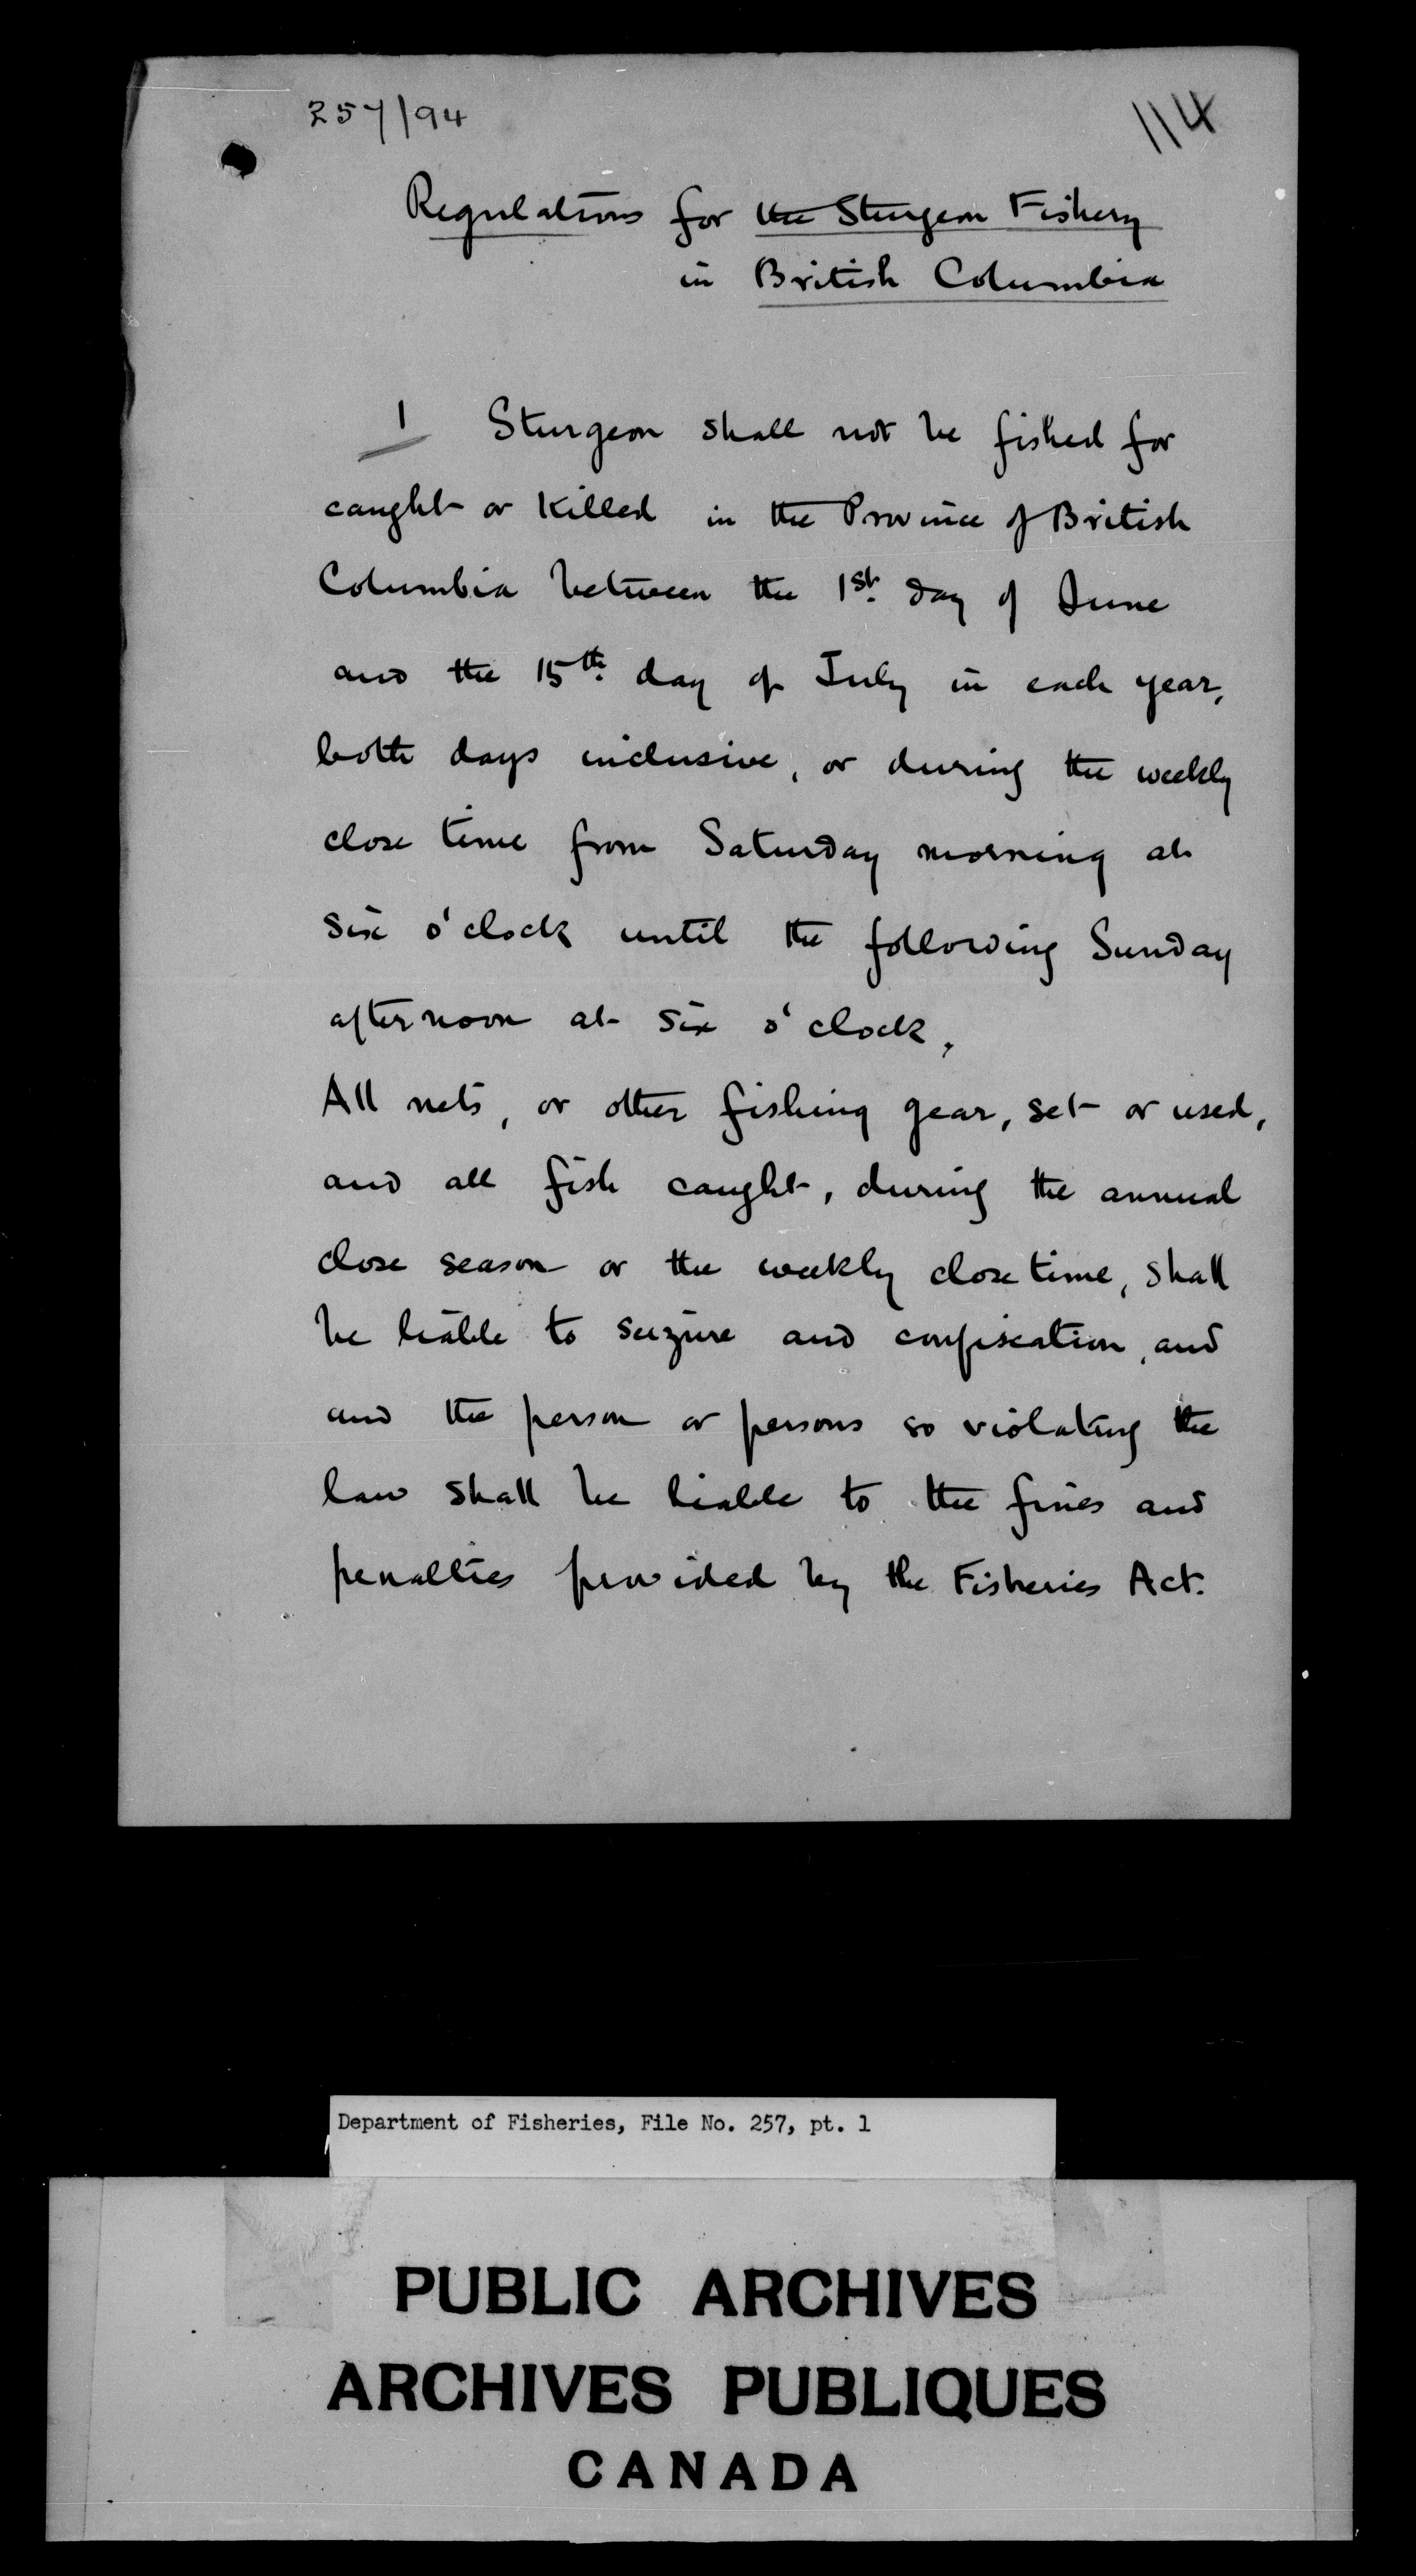 257/94
114
Regulations for the Sturgeon Fishery
in British Columbia
1 Sturgeon shall not be fished for
caught or killed in the Province of British
Columbia between the 1st. day of June
and the 15th. day of July in each year,
both days inclusive, or during the weekly
close time from Saturday morning at
six o'clock until the following Sunday
afternoon at six o'clock.
All nets, or other fishing gear, set or used,
and all fish caught, during the annual
close season or the weekly close time, shall
be liable to seizure and confiscation, and
and the person or persons so violating the
law shall be liable to the fines and
penalties provided by the Fisheries Act.
Department of Fisheries, File No. 257, pt. 1
PUBLIC ARCHIVES
ARCHIVES PUBLIQUES
CANADA